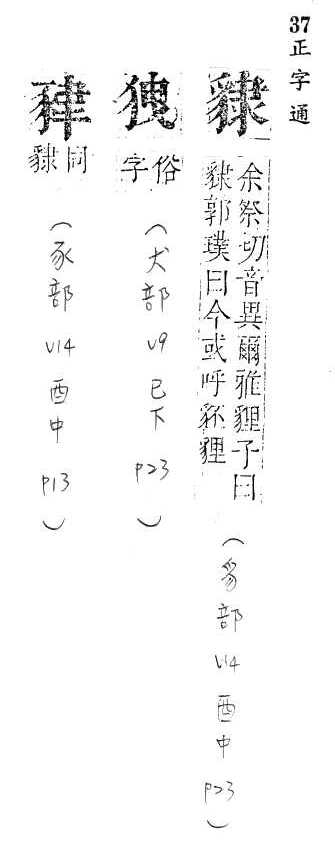 37 正字通
䝘
余祭切音異爾雅貍子曰
䝘郭璞曰今或呼豾貍
(豸部 V14 酉中 P23)
俗字
(犬部 V9 巳下 P23)
同䝘
(豕部 V14 酉中 P13)